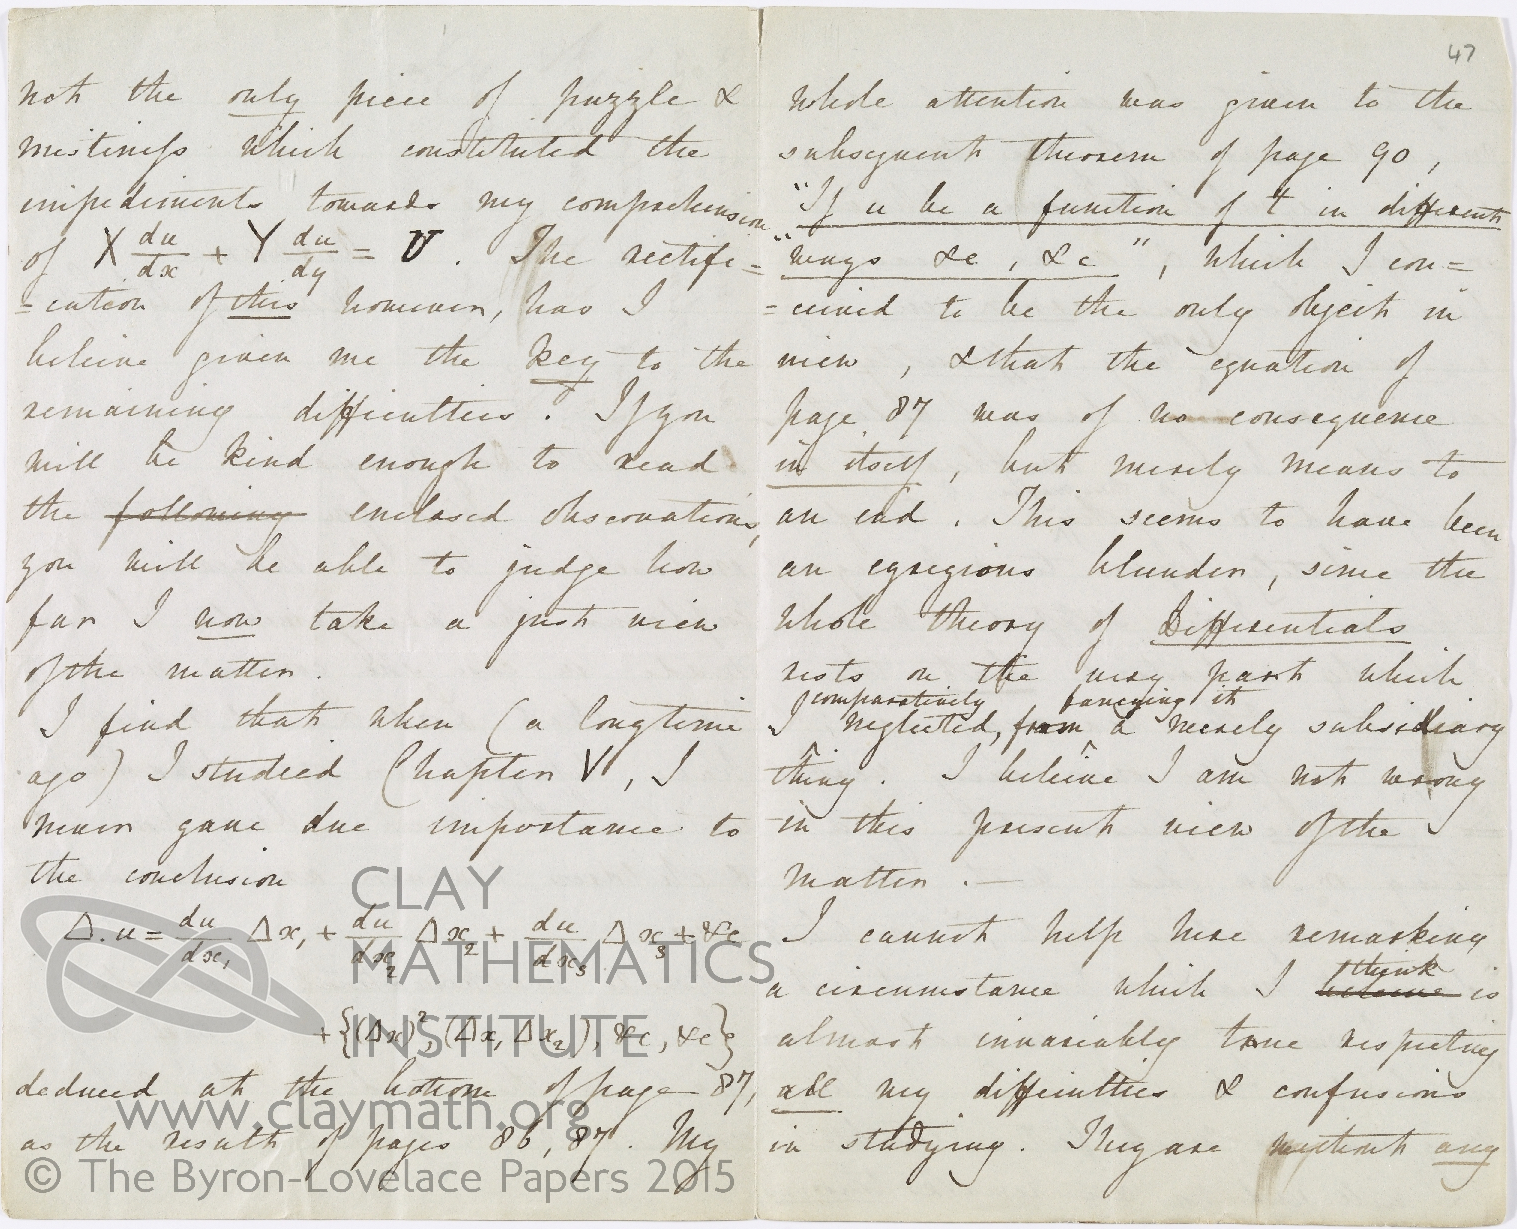 not the only piece of puzzle &
mistiness which constituted the
impediments towards my comprehension
of X du/dx + Y du/dy = U. The rectifi=
=cation of this however, has I
believe given me the key to the
remaining difficulties. If you
will be kind enough to read
the following enclosed observations,
you will be able to judge how
far I now take a just view
of the matter.
I find that when (a long time
ago) I studied Chapter V, I
never gave due importance to
the conclusion
Δ.u = du/dx₁ Δx₁ + du/dx₂ Δx₂ + du/dx₃ Δx₃ + &c
+ {(Δx)², (Δx₁ Δx₂), &c, &c}
deduced at the bottom of page 87,
as the result of pages 86, 87. My
47
whole attention was given to the
subsequent theorem of page 90,
"If u be a function of t in different
"ways &c, &c", which I con=
=ceived to be the only object in
view, & that the equation of
page 87 was of no consequence
in itself, but merely means to
an end. This seems to have been
an egregious blunder, since the
whole theory of Differentials
rests on the very part which
comparatively fancying it
I neglected, from a merely subsidiary
thing. I believe I am not wrong
in this present view of the
matter. —
I cannot help here remarking
think
a circumstance which I believe is
almost invariably true respecting
all my difficulties & confusions
in studying. They are without any
CLAY
MATHEMATICS
INSTITUTE
www.claymath.org
© The Byron-Lovelace Papers 2015